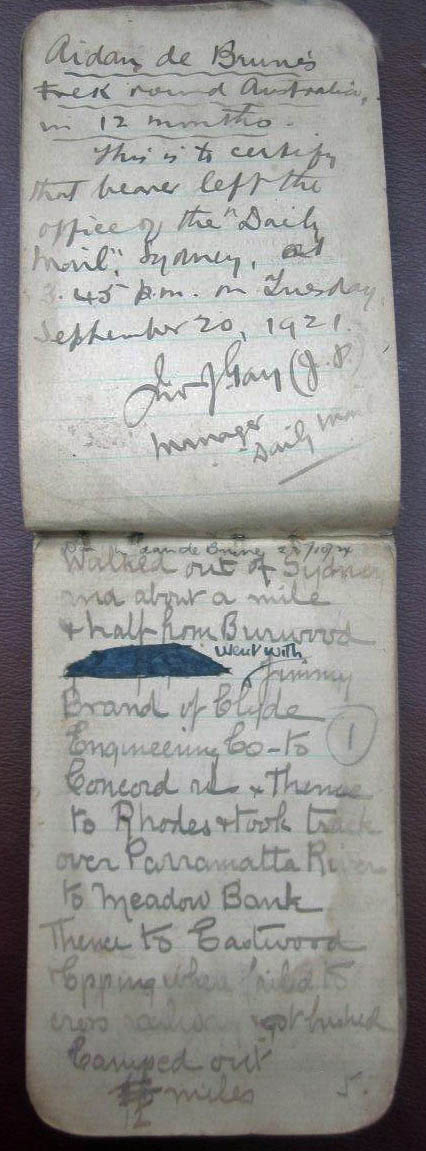 Aidan de Brune's
trek round Australia,
in 12 months.
This is to certify
that bearer left the
office of the "Daily
Mail", Sydney, at
3.45 p.m. on Tuesday,
September 20, 1921.
Gay (J.P.)
Manager
Daily Mail
de Brune
Walked out of Sydney
and about a mile
& half from Burwood
went with
Jimmy
Brand of Clyde
Engineering Co - to
1
Concord rd & thence
to Rhodes & took track
over Parramatta River
to Meadow Bank
Thence to Eastwood
Epping when failed to
cross railway & got bushed
Camped out
miles
12
5.